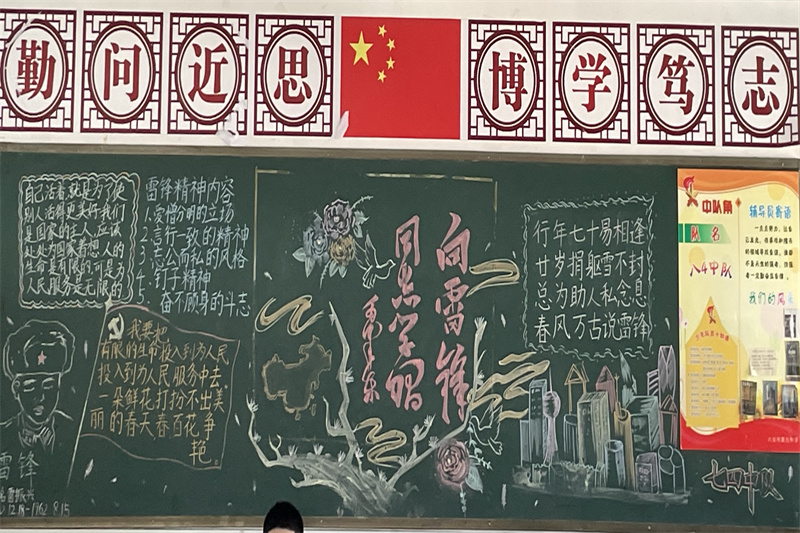 勤问近思
博学笃志
自己活着,就是为了使
别人活得更美好我们
是国家的主人应该
处处为国家着想人的
生命是有限的可是为
人民服务是无限的
雷锋精神内容
1.爱憎分明的立场
2.言行一致的精神
3.忘公而私的风格
4.钉子精神
5.奋不顾身的斗志
我要把
有限的生命投入到为人民
投入到为人民服务中去
一朵鲜花打扮不出美
丽的春天春百花争
艳。
雷锋
12.18-1962 8.15
向雷锋
同志学习
毛泽东
行年七十易相逢
廿岁捐躯雪不封
总为助人私念息
春风万古说雷锋
七四中队
中队角
队名
八4中队
辅导员寄语
我们的风